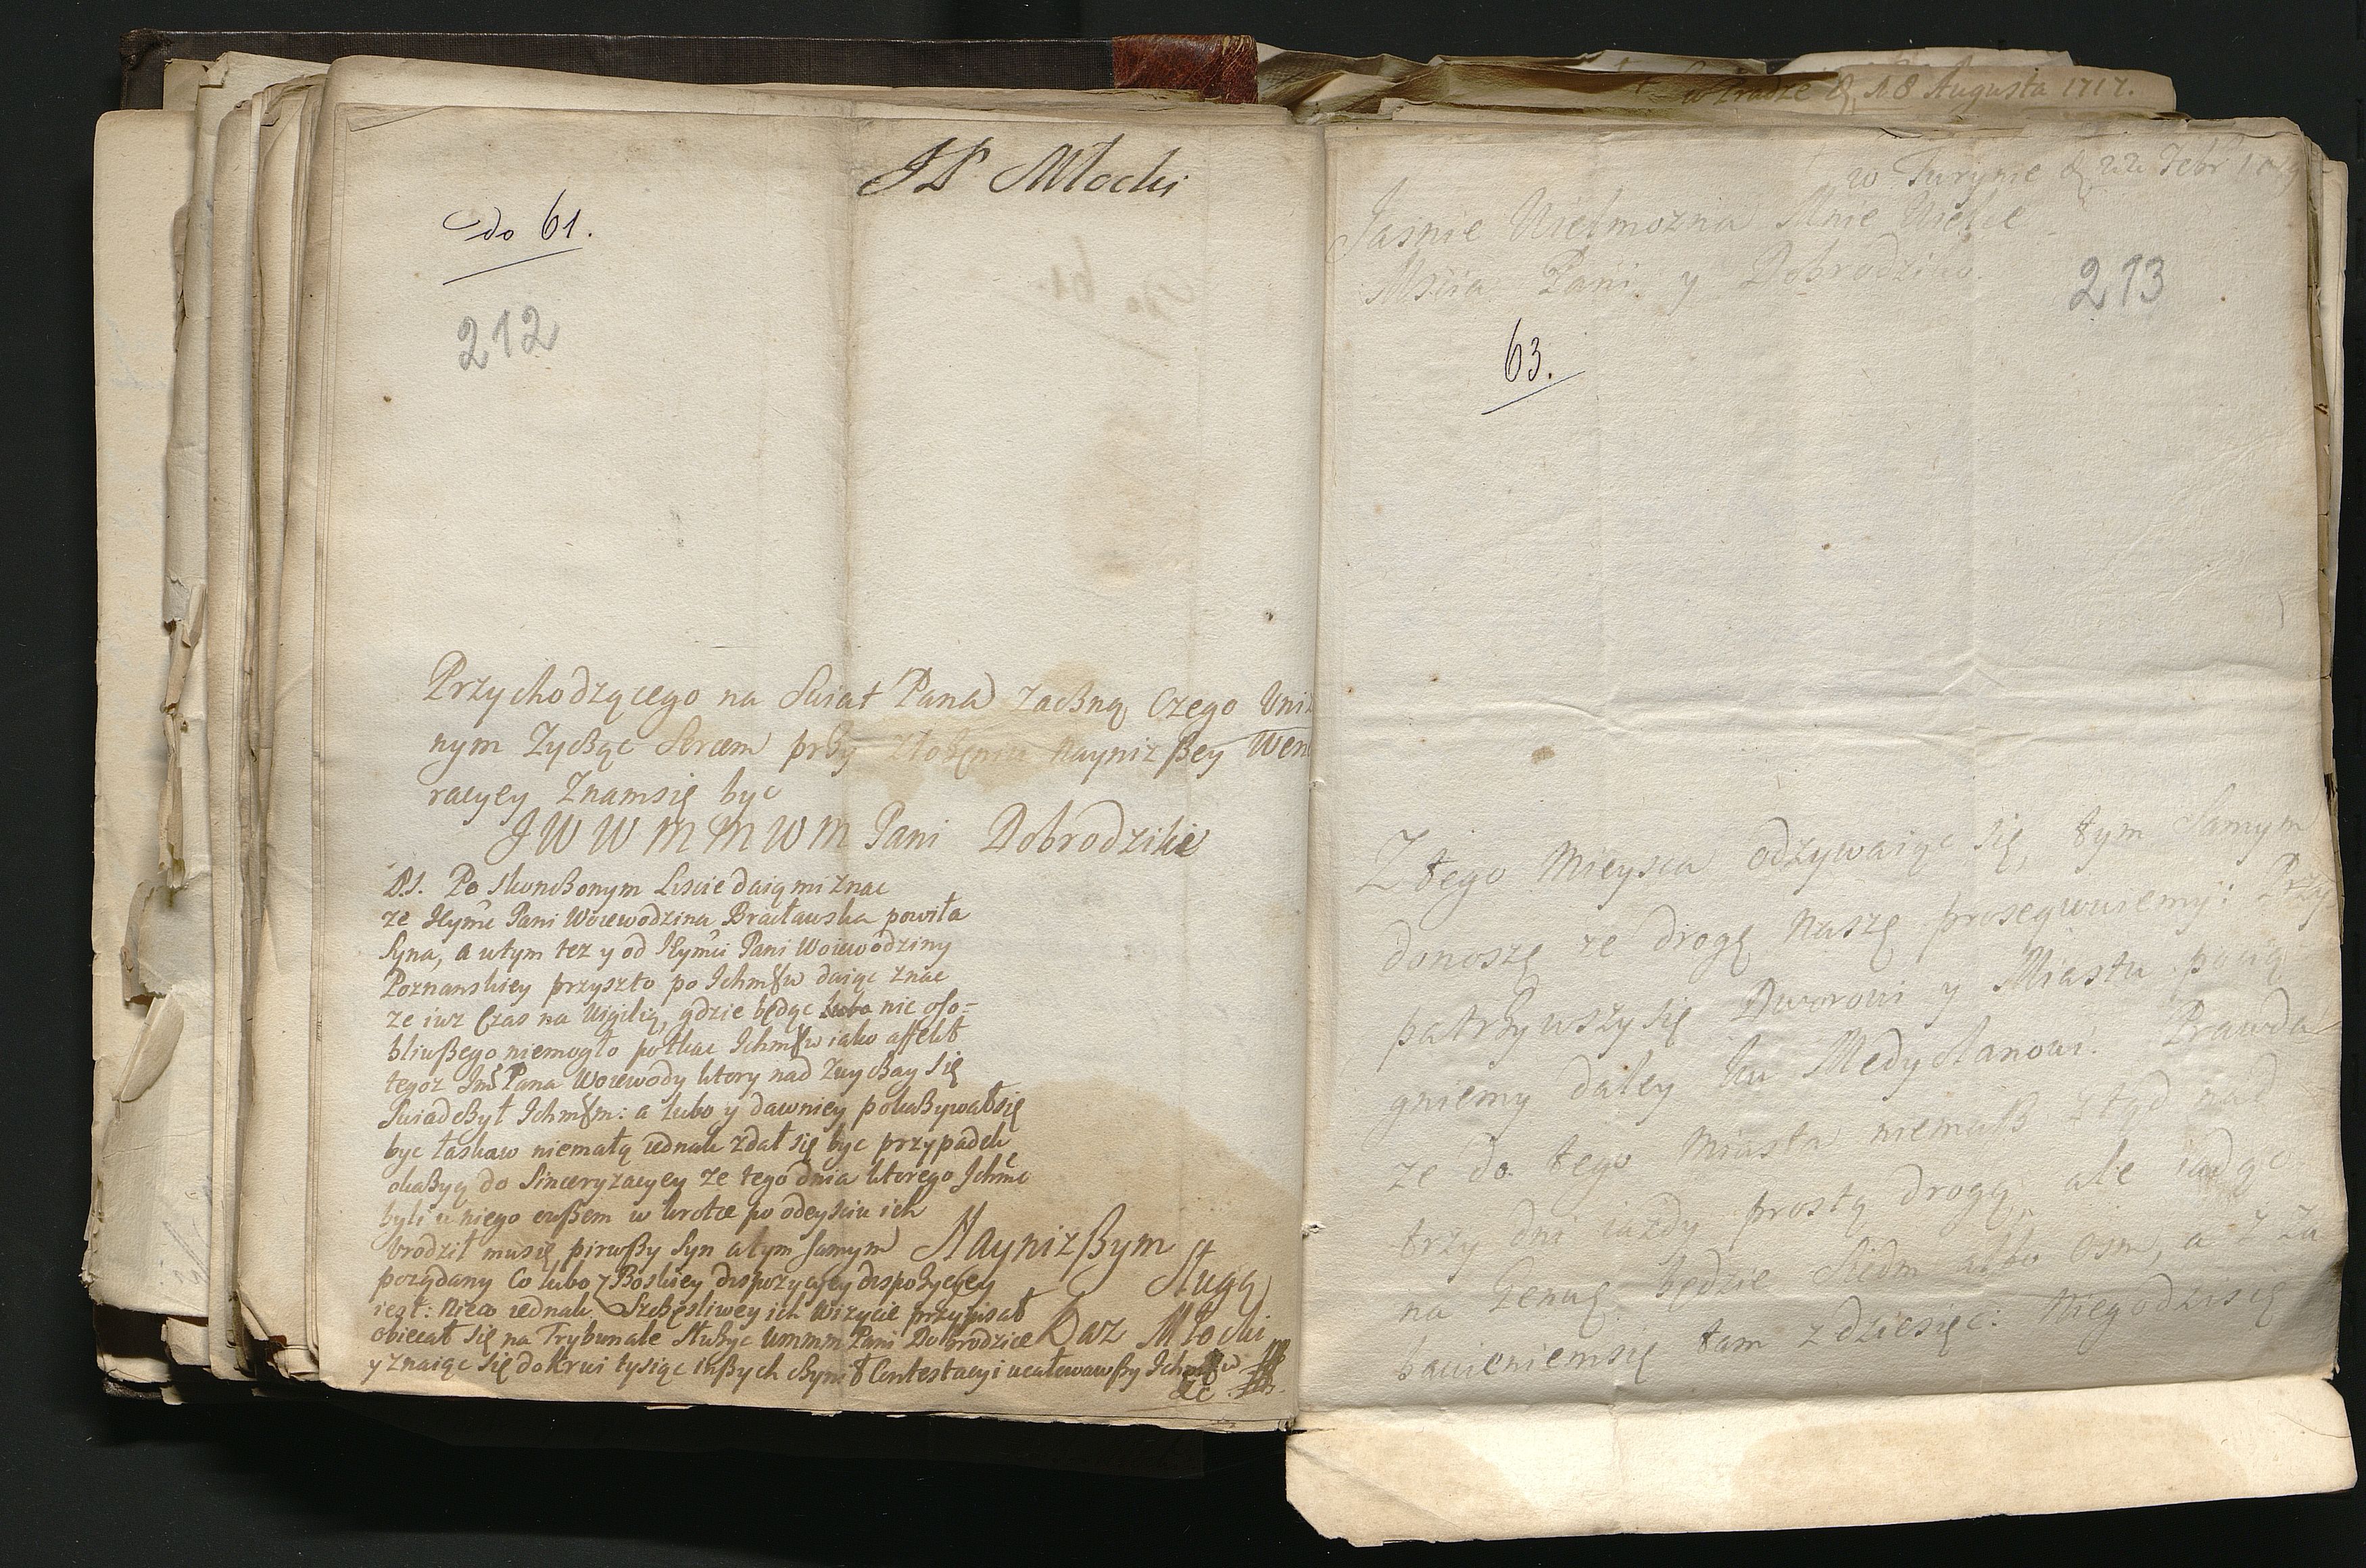 JP Młocki
do 61.
212
Przychodzącego na Swiat Pana zaßną Czego Uni
nym Zycßąc Sercem prßy złoßeniu Nayniz ßey Wen
racyey Znamsię byc
J W W M M W M Pani Dobrodziki
P.S. Po skonczonym Liscie daią mi znac
ze Jeymć Pani Woiewodzina Bracławska powiła
Syna, a wtym tez y od Jeymći Pani Woiewodziny
Poznanskiey przyszło po Ichmćw daiąc znac
ze iuz Czas na Wigilią, gdzie będąc lubo nic oso-
bliwßego niemogło potkac Ichmćw iako affekt
tegoz Jmć Pana Woiewody ktory nad Zwycßay Się
Swiadcßył Ichmćm: a lubo y dawniey pokaßywał się
byc łaskaw niemałą iednak zdał się byc przypadek
okaßyą do Sinceryzacyey ze tego dnia ktorego Ichmć
byli u niego owßem w krotce po odeysciu ich
brodził musię pirwßy Syn a tym samym
poządany Co lubo z Boskiey dispozycyey
iest: Nieco iednak Szcßęsliwey ich Wizycie przypisał
obiecał się na Trybunale Słußyc Wmmm Pani Dobrodzice
y znaiąc się do Krwi tysiąc inßych cßynił Contestacyi ucałowawßy
Nayniz ßym
Sługą
Kaz Młocki
w Pradze D. 18 Augusta 1717.
w Turynie D 22 Febr
Jasnie Wielmozna Mnie Wielce
Mscia Pani y Dobrodziko.
213
63.
Z tego Mieysca odzywaiąc się, tym Samym
donoszę ze drogę Naszę proseqwuiemy: Przy
patrßywszy się Dworowi y Miastu pocią
gniemy daley ku Medyolanowi. Prawda
ze do tego Miasta niemaß ztąd nad
trzy dni iazdy prostą drogą, ale iadąc
na Genuę będzie Siedm albo Osm, a z za
bawieniemsię tam z dziesięc: Niegodzisię